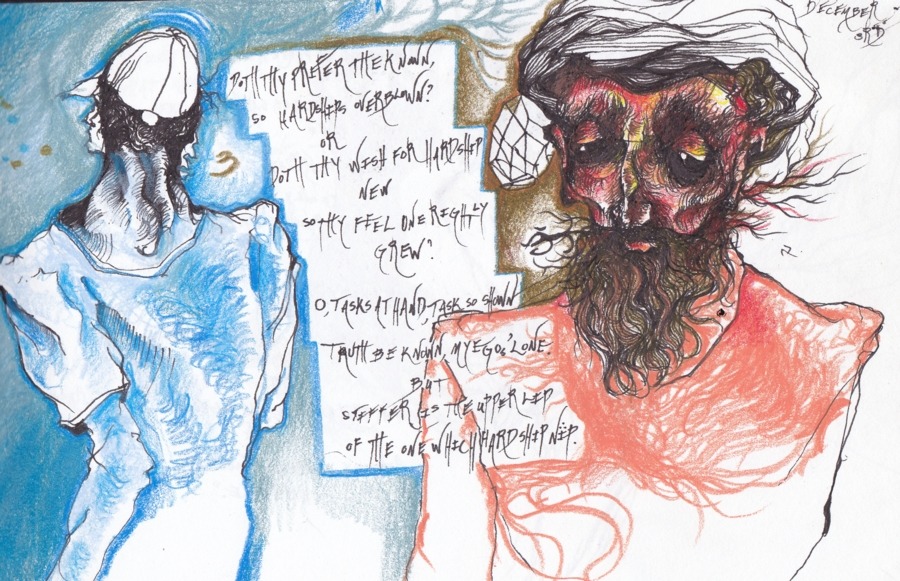 DECEMBER
3RD
DOTH THY PREFER THE KNOWN,
SO HARDSHIPS OVERBLOWN?
OR
DOTH THY WISH FOR HARDSHIP
NEW
SO THY FEEL ONE RIGHTLY
GREW?
O, TASKS AT HAND-TASK SO SHOWN
TRUTH BE KNOWN, MY EGOS' LONE.
BUT
STIFFER IS THE UPPER LIP
OF THE ONE WHICH HARDSHIP NIP.